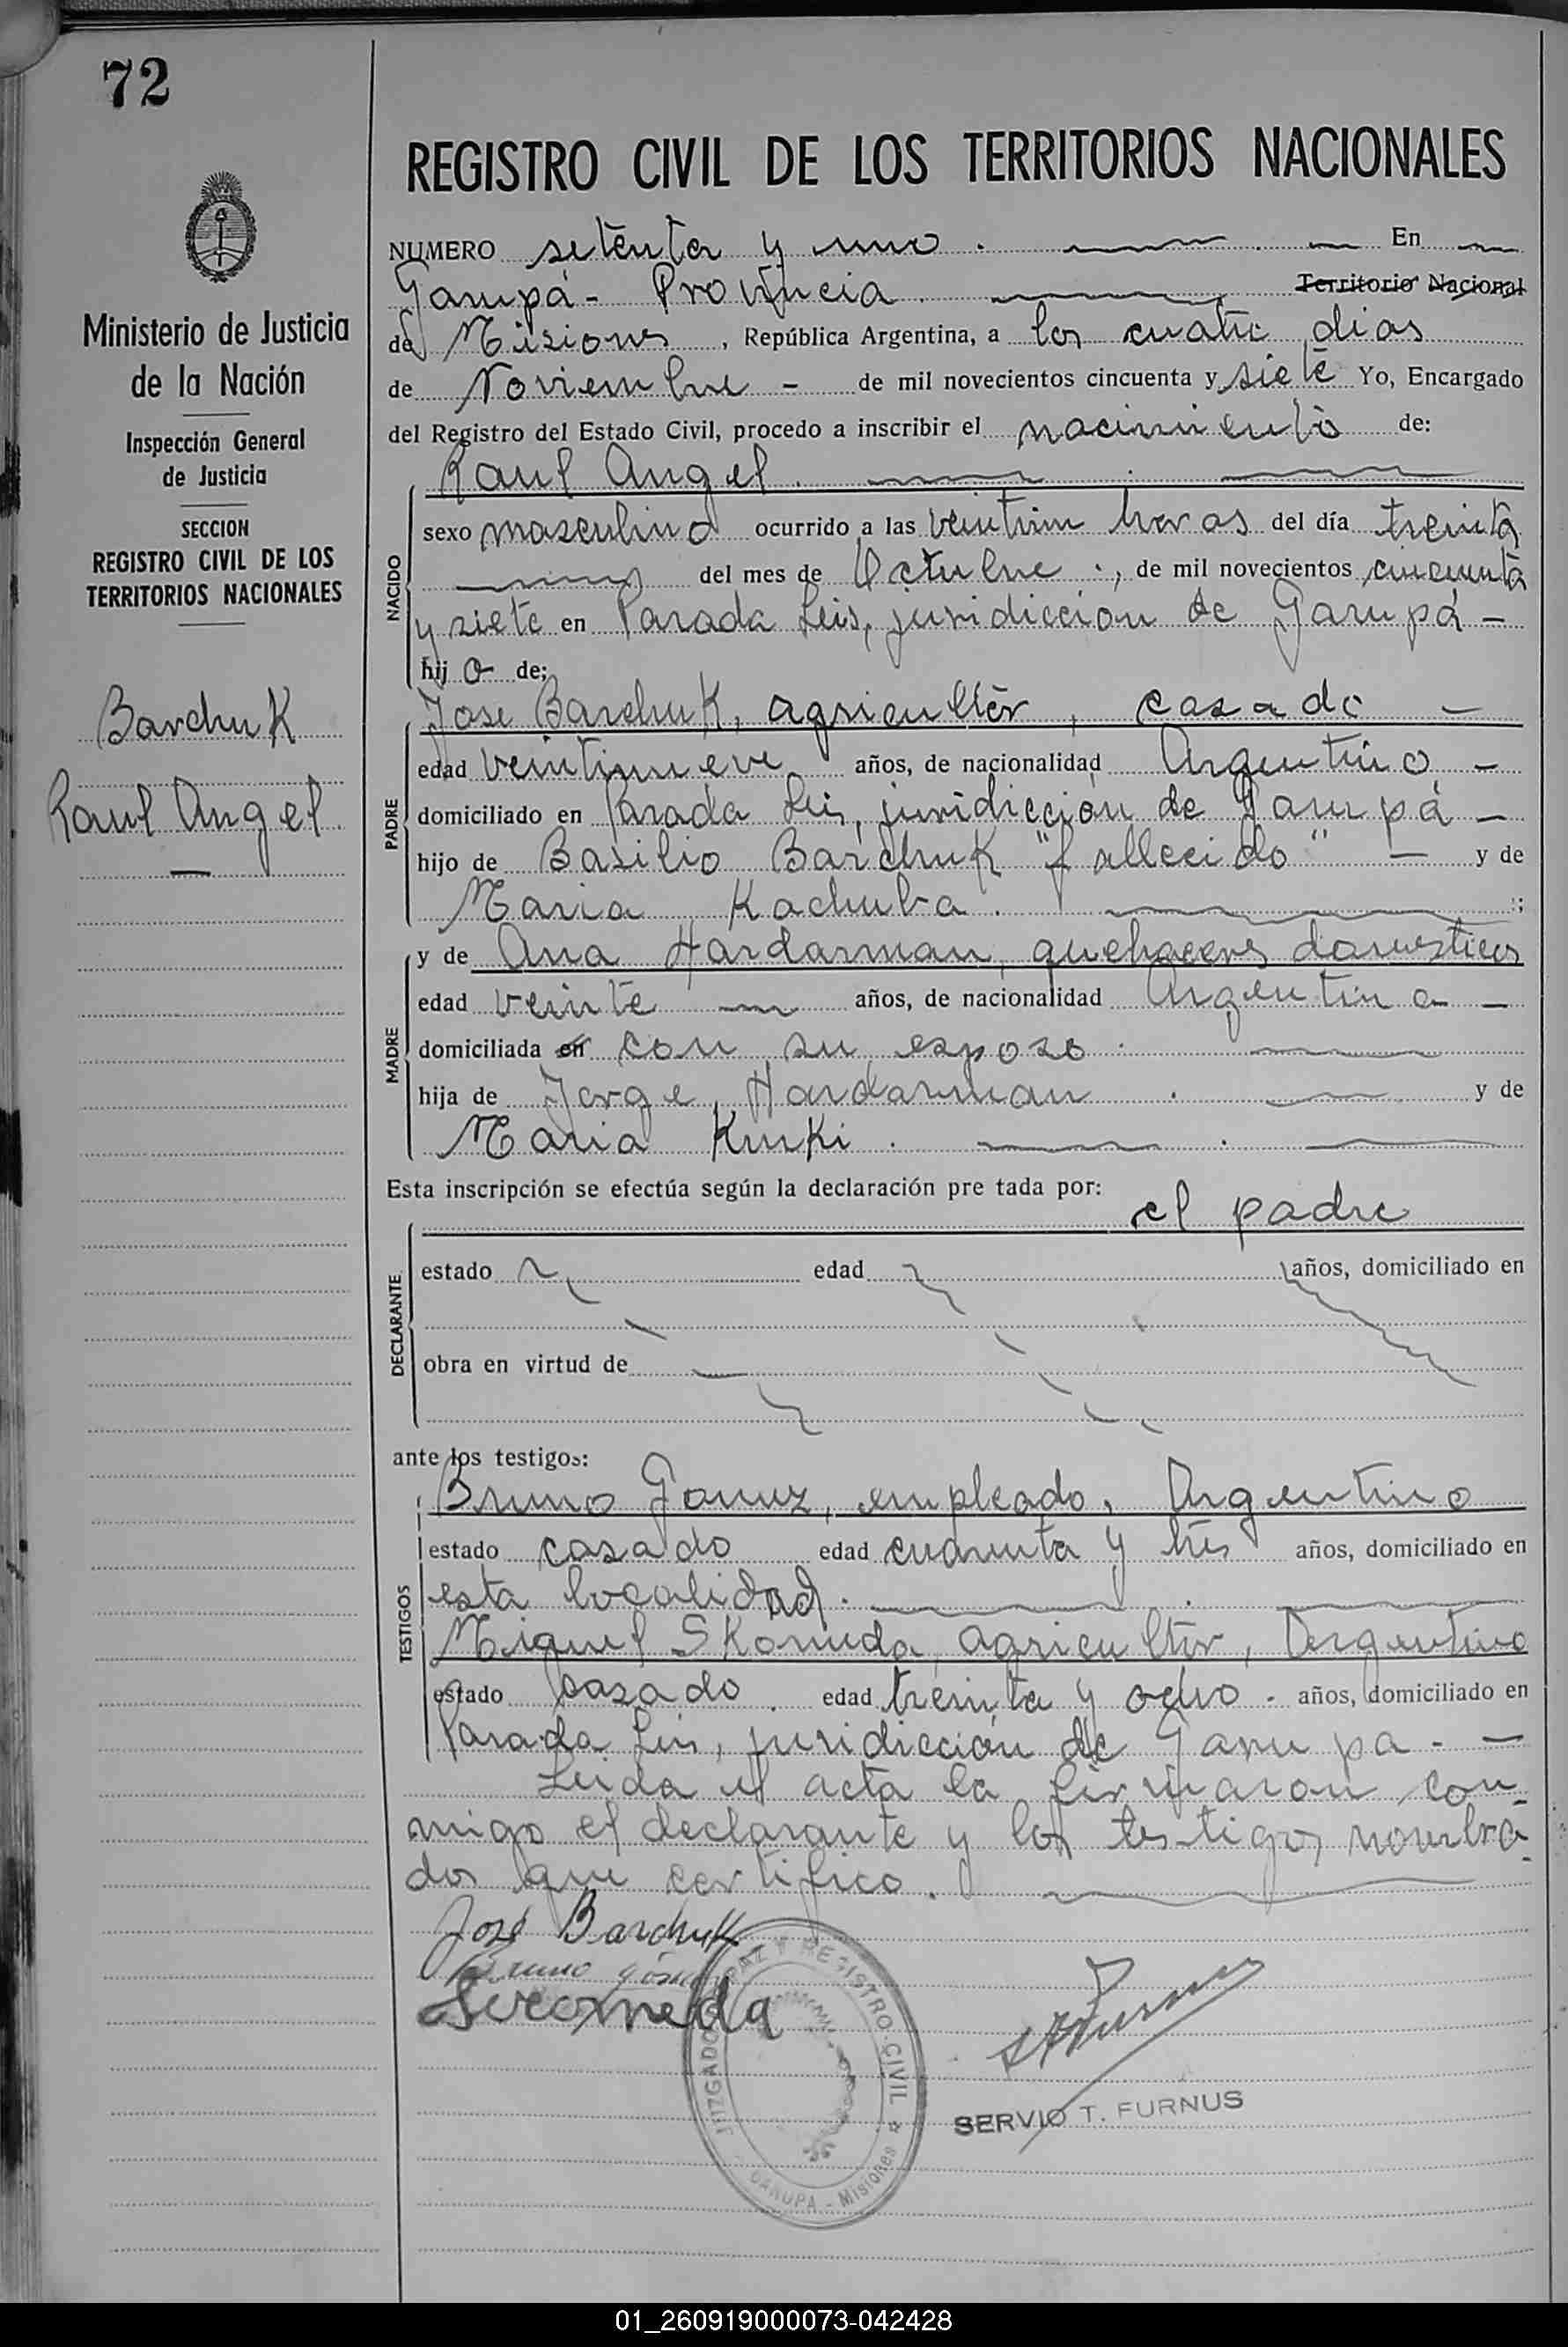 72
REGISTRO CIVIL DE LOS TERRITORIOS NACIONALES
Ministerio de Justicia
de la Nación
Inspección General
de Justicia
SECCION
REGISTRO CIVIL DE LOS
TERRITORIOS NACIONALES
Barchuk
Raul Angel
NUMERO setenta y uno . En
Garupá - Provincia Territorio Nacional
de Misiones, República Argentina, a los cuatro dias
de Noviembre - de mil novecientos cincuenta y siete Yo, Encargado
del Registro del Estado Civil, procedo a inscribir el nacimiento de:
Raul Angel.
NACIDO
sexo masculino ocurrido a las veintiun horas del día treinta
del mes de Octubre ., de mil novecientos cincuenta
y siete en Parada Leis, juridiccion de Garupá -
hij o de:
Jose Barchuk, agricultor, casado -
PADRE
edad veintinueve años, de nacionalidad Argentino -
domiciliado en Parada Leis, juridicción de Garupá -
hijo de Basilio Barchuk "fallecido" - y de
Maria Kachuba . ;
MADRE
y de Ana Hardarman, quehaceres domesticos
edad veinte años, de nacionalidad Argentina -
domiciliada en con su esposo .
hija de Jorge Hardarman . y de
Maria Kruki .
Esta inscripción se efectúa según la declaración pre tada por:
el padre
DECLARANTE
estado edad años, domiciliado en
obra en virtud de
ante los testigos:
TESTIGOS
Bruno Gomez, empleado, Argentino
estado casado edad cuarenta y tres años, domiciliado en
esta localidad.
Miguel Skomeda, agricultor, Argentino
estado casado . edad treinta y ocho - años, domiciliado en
Parada Leis, juridicción de Garupa - -
Leida el acta la firmaron con
migo el declarante y los testigos nombra-
dos que certifico.
José Barchuk
Bruno Góm
Scromeda
JUZGADO PAZ Y REGISTRO CIVIL
GARUPA - Misiones
SERVIO T. FURNUS
01_260919000073-042428